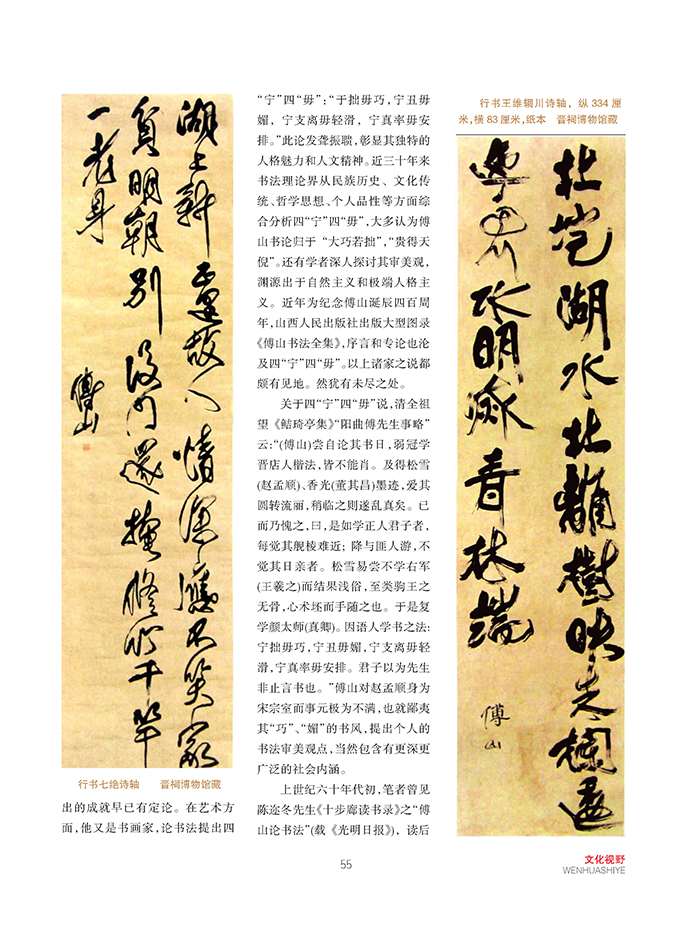 湖上新正逢故人情深應不笑家
貧明朝別後門還掩脩竹千竿
一老身
傅山
行书七绝诗轴 晋祠博物馆藏
出的成就早已有定论。在艺术方
面,他又是书画家,论书法提出四
“宁”四“毋”:“于拙毋巧,宁丑毋
媚，宁支离毋轻滑，宁真率毋安
排。”此论发聋振聩,彰显其独特的
人格魅力和人文精神。近三十年来
书法理论界从民族历史、文化传
统、哲学思想、个人品性等方面综
合分析四“宁”四“毋”,大多认为傅
山书论归于 “大巧若拙”,“贵得天
倪”。还有学者深入探讨其审美观,
渊源出于自然主义和极端人格主
义。近年为纪念傅山诞辰四百周
年,山西人民出版社出版大型图录
《傅山书法全集》,序言和专论也沦
及四“宁”四“毋”。以上诸家之说都
颇有见地。然犹有未尽之处。
关于四“宁”四“毋”说,清全祖
望《鲒琦亭集》“阳曲傅先生事略”
云:“(傅山)尝自论其书日,弱冠学
晋店人楷法,皆不能肖。及得松雪
(赵孟顺)、香光(董其昌)墨迹,爱其
圆转流丽,稍临之则遂乱真矣。已
而乃愧之,曰,是如学正人君子者,
每觉其觚棱难近; 降与匪人游,不
觉其日亲者。松雪易尝不学右军
(王羲之)而结果浅俗,至类驹王之
无骨,心术坯而手随之也。于是复
学颜太师(真卿)。因语人学书之法:
宁拙毋巧,宁丑毋媚,宁支离毋轻
滑,宁真率毋安排。君子以为先生
非止言书也。”傅山对赵孟顺身为
宋宗室而事元极为不满,也就鄙夷
其“巧”、“媚”的书风,提出个人的
书法审美观点,当然包含有更深更
广泛的社会内涵。
上世纪六十年代初,笔者曾见
陈迩冬先生《十步廊读书录》之“傅
山论书法”(载《光明日报》),读后
行书王维辋川诗轴，纵 334 厘
米,横 83 厘米,纸本 晋祠博物馆藏
北垞湖水北雜樹映朱欄逶
迤南川水明滅青林端
傅山
55
文化视野
WENHUASHIYE